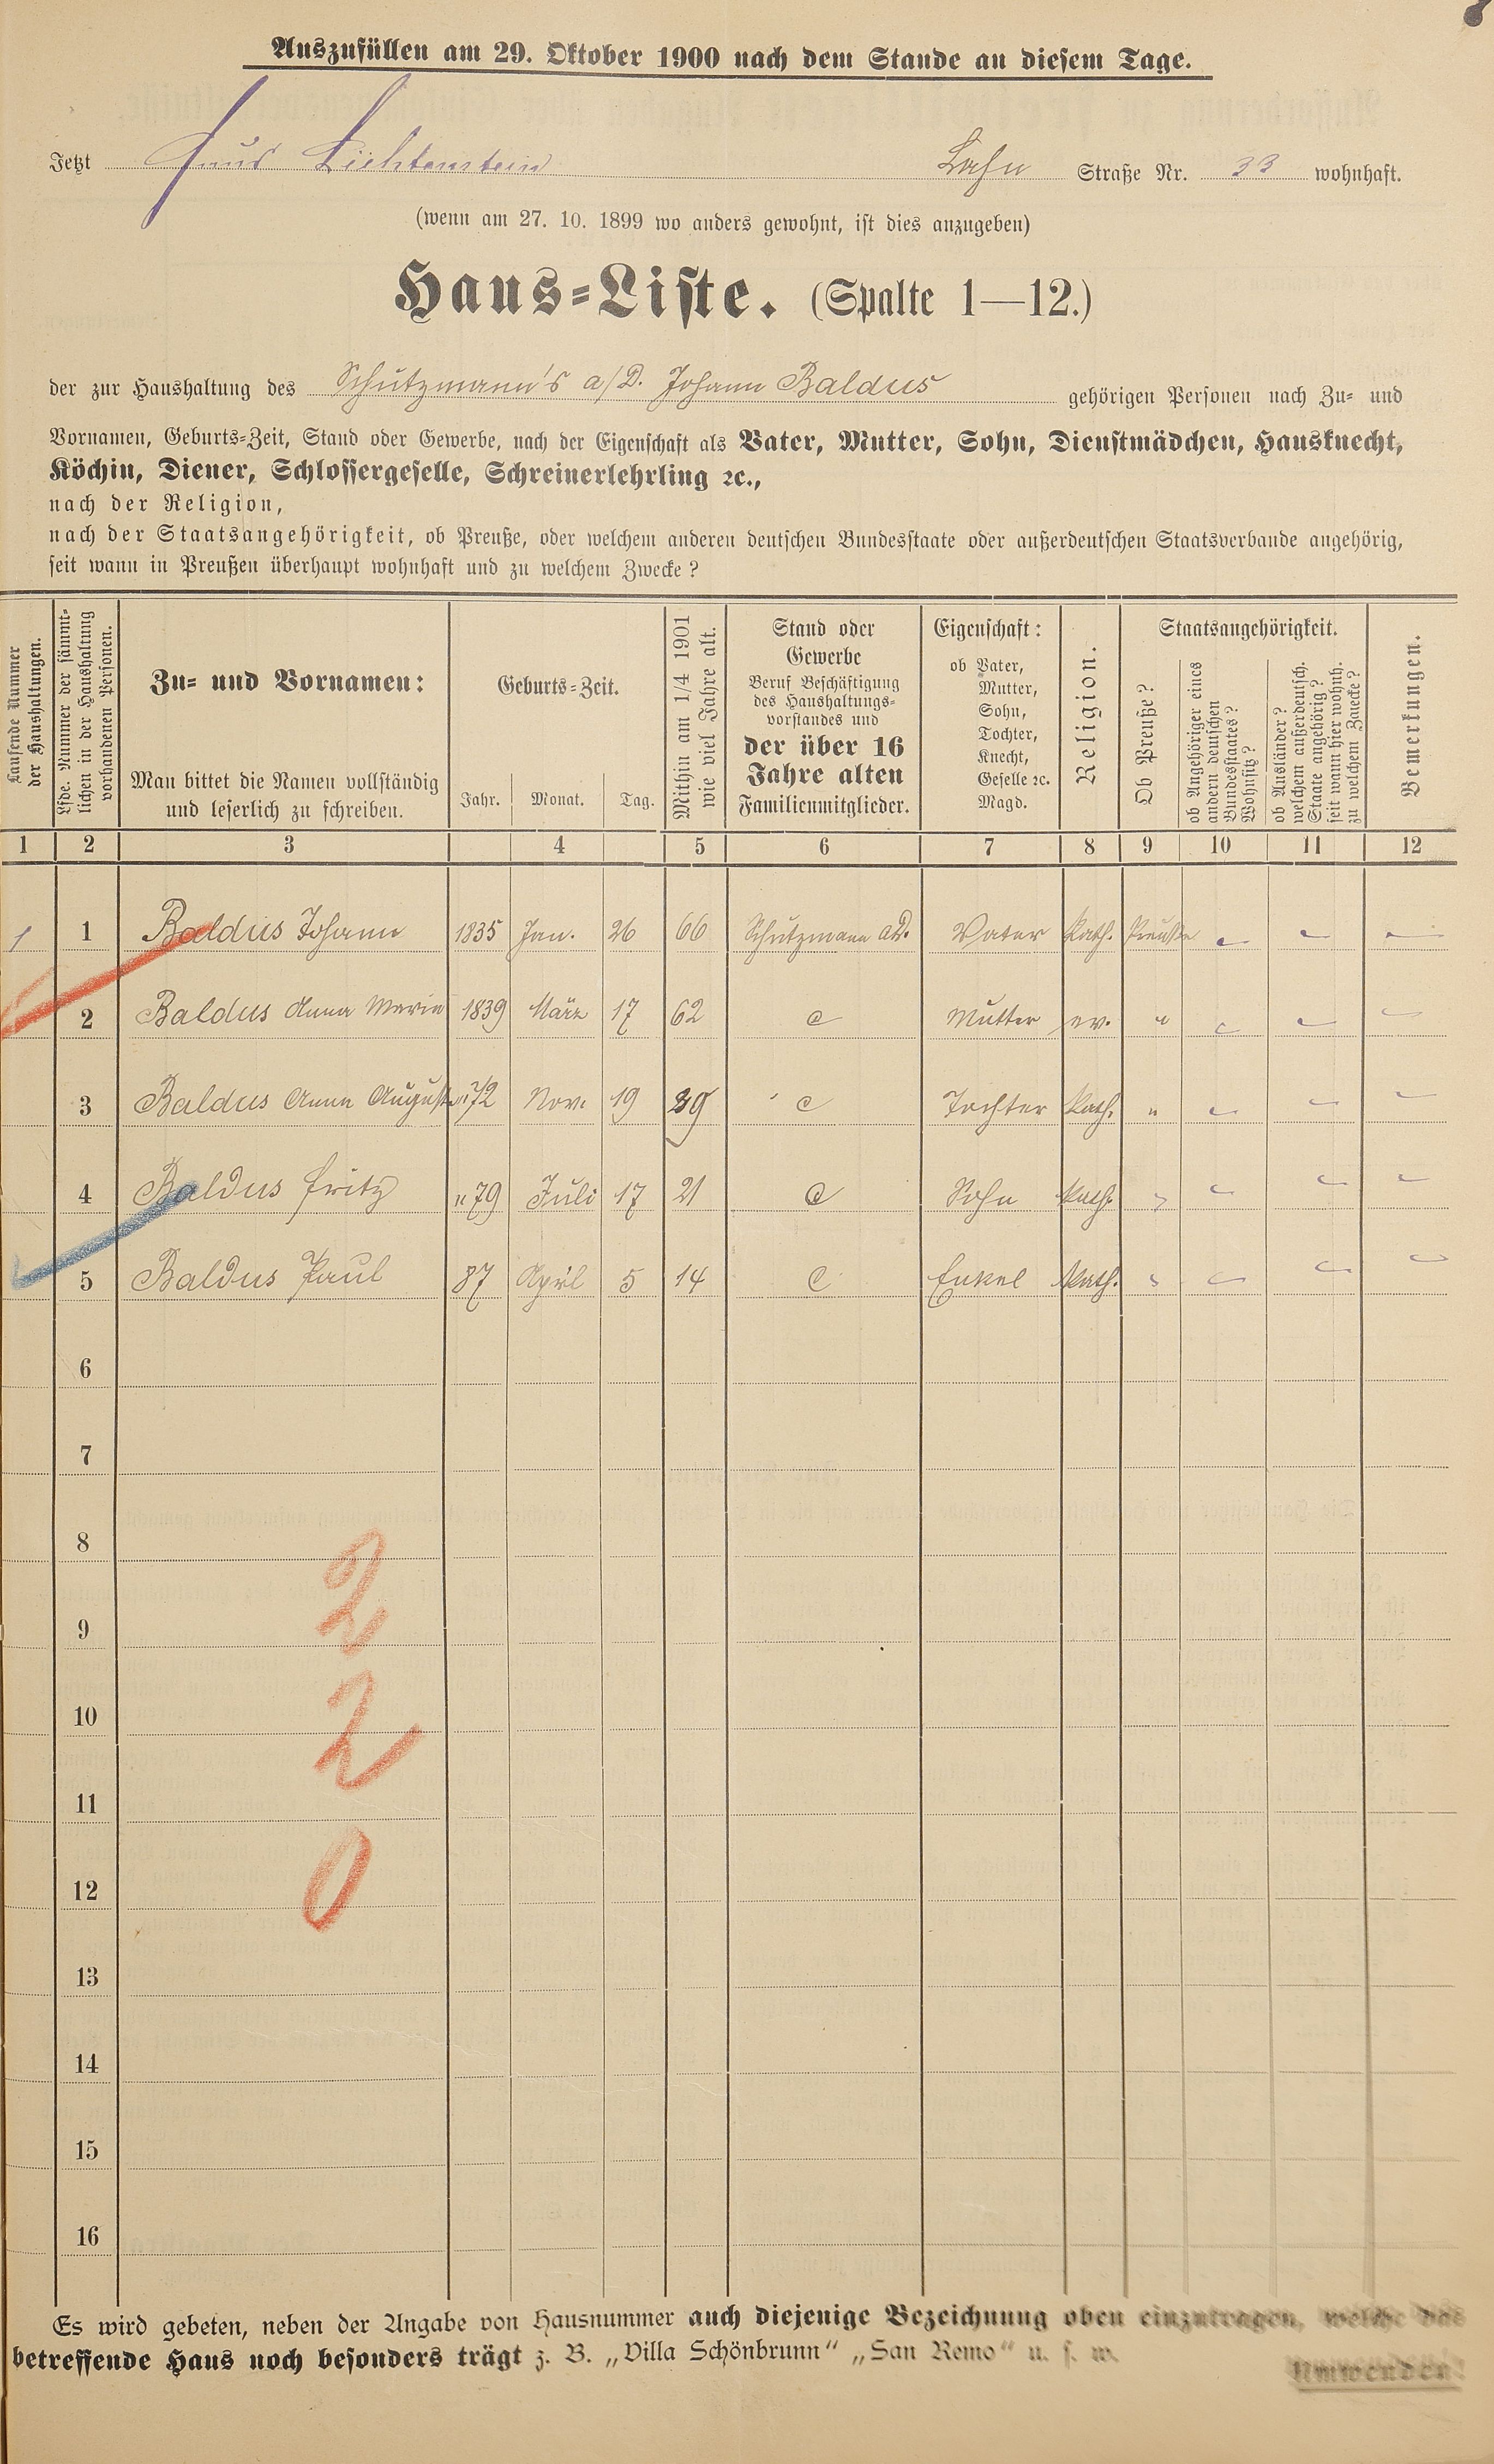 Auszufüllen am 29. Oktober 1900 nach dem Stande an diesem Tage.
Jetzt Haus Lichtenstein Lahn Straße Nr. 33 wohnhaft.
(wenn am 27. 10. 1899 wo anders gewohnt, ist dies anzugeben)
Haus-Liste. (Spalte 1—12.)
der zur Haushaltung des Schutzmann's a/D. Johann Baldus gehörigen Personen nach Zu- und
Vornamen, Geburts-Zeit, Stand oder Gewerbe, nach der Eigenschaft als Vater, Mutter, Sohn, Dienstmädchen, Hausknecht,
Köchin, Diener, Schlossergeselle, Schreinerlehrling ꝛc.,
nach der Religion,
nach der Staatsangehörigkeit, ob Preuße, oder welchem anderen deutschen Bundesstaate oder außerdeutschen Staatsverbande angehörig,
seit wann in Preußen überhaupt wohnhaft und zu welchem Zwecke?
Laufende Nummer
der Haushaltungen.
Lfde. Nummer der sämmt-
lichen in der Haushaltung
vorhandenen Personen.
Zu- und Vornamen:
Man bittet die Namen vollständig
und leserlich zu schreiben.
Geburts-Zeit.
Jahr. Monat. Tag.
Mithin am 1/4 1901
wie viel Jahre alt.
Stand oder
Gewerbe
Beruf Beschäftigung
des Haushaltungs-
vorstandes und
der über 16
Jahre alten
Familienmitglieder.
Eigenschaft:
ob Vater,
Mutter,
Sohn,
Tochter,
Knecht,
Geselle ꝛc.
Magd.
Religion.
Staatsangehörigkeit.
Ob Preuße?
ob Angehöriger eines
andern deutschen
Bundesstaates?
Wohnsitz?
ob Ausländer?
welchem außerdeutsch.
Staate angehörig?
seit wann hier wohnh.
zu welchem Zwecke?
Bemerkungen.
1 2 3 4 5 6 7 8 9 10 11 12
1 1 Baldus Johann 1835 Jan. 26 66 Schutzmann aD. Vater Kath. Preuße
2 Baldus Anna Maria 1839 März 17 62 Mutter ev. "
3 Baldus Anna Auguste "72 Nov. 19 29 Tochter Kath. "
4 Baldus Fritz "79 Juli 17 21 Sohn Kath.
5 Baldus Paul 87 April 5 14 Enkel Kath.
6
7
8
2
9
10
2
11
12
0
13
14
15
16
Es wird gebeten, neben der Angabe von Hausnummer auch diejenige Bezeichnung oben einzutragen, welche das
betreffende Haus noch besonders trägt z. B. „Villa Schönbrunn“ „San Remo“ u. s. w.
Umwenden!